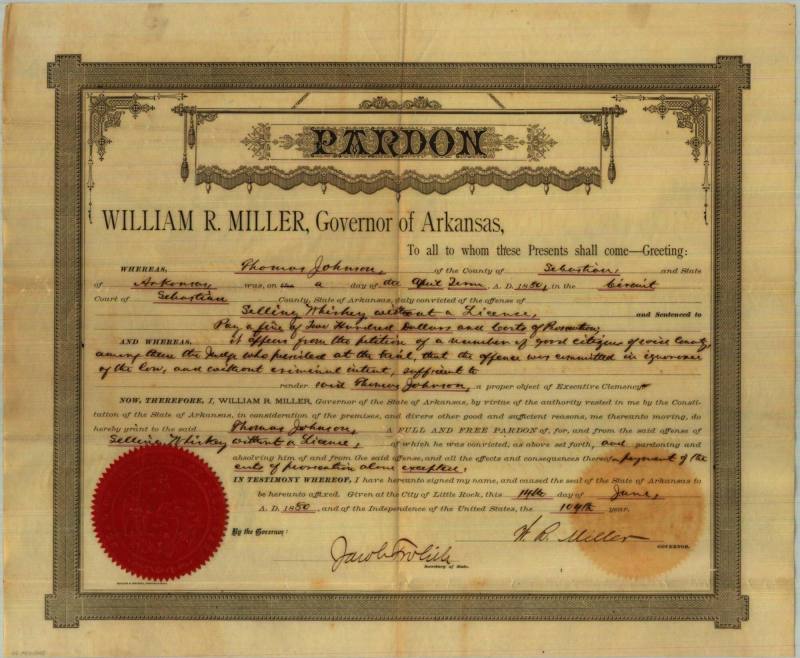 PARDON
WILLIAM R. MILLER, Governor of Arkansas,
To all to whom these Presents shall come—Greeting:
WHEREAS, Thomas Johnson, of the County of Sebastian, and State
of Arkansas, was, on a day of the April Term, A. D. 1880, in the Circuit
Court of Sebastian County, State of Arkansas, duly convicted of the offense of
Selling Whiskey without a License, and Sentenced to
Pay a fine of Two Hundred Dollars and Costs of Prosecution,
AND WHEREAS, it appears from the petition of a number of good citizens of said County,
among them the Judge who presided at the trial, that the offence was committed in ignorance
of the law, and without criminal intent, sufficient to
render said Thomas Johnson, a proper object of Executive Clemency
NOW, THEREFORE, I, WILLIAM R. MILLER, Governor of the State of Arkansas, by virtue of the authority vested in me by the Consti-
tution of the State of Arkansas, in consideration of the premises, and divers other good and sufficient reasons, me thereunto moving, do
hereby grant to the said Thomas Johnson, A FULL AND FREE PARDON of, for, and from the said offense of
Selling Whiskey without a License, of which he was convicted, as above set forth, and pardoning and
absolving him of and from the said offense, and all the effects and consequences thereof, payment of the
costs of prosecution alone excepted,
IN TESTIMONY WHEREOF, I have hereunto signed my name, and caused the seal of the State of Arkansas to
be hereunto affixed. Given at the City of Little Rock, this 14th day of June,
A. D. 1880, and of the Independence of the United States, the 104th year.
By the Governor:
W. R. Miller
GOVERNOR.
Jacob Frolich
Secretary of State.